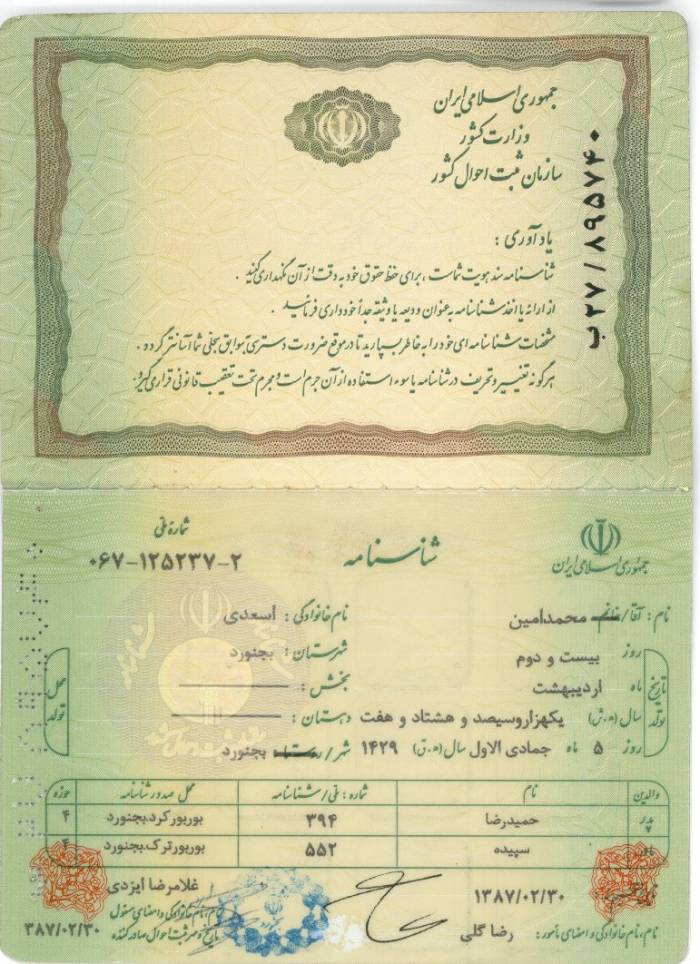 جمهوری اسلامی ایران
وزارت کشور
سازمان ثبت احوال کشور
ب۲۷/۸۹۵۷۴۰
یادآوری :
شناسنامه سند هویت شماست ، برای حفظ حقوق خود به دقت از آن نگهداری کنید .
از ارائه یا اخذ شناسنامه به عنوان ودیعه یا وثیقه جداً خودداری فرمائید .
مشخصات شناسنامه ای خود را به خاطر بسپارید تا در موقع ضرورت دسترسی بسوابق سجلی شما آسانتر گردد .
هرگونه تغییر و تحریف در شناسنامه یا سوء استفاده از آن جرم است و مجرم تحت تعقیب قانونی قرار می گیرد.
جمهوری اسلامی ایران
شناسنامه
شمارهٔ ملی
۰۶۷-۱۲۵۲۳۷-۲
نام : آقا/خانم محمدامین نام خانوادگی : اسعدی
تاریخ تولد
روز بیست و دوم
ماه اردیبهشت
سال (ه.ش) یکهزاروسیصد و هشتاد و هفت
روز ۵ ماه جمادی الاول سال (ه.ق) ۱۴۲۹
محل تولد
شهرستان : بجنورد
بخش :
دهستان :
شهر/روستا بجنورد
والدین نام شماره : ملی/شناسنامه محل صدور شناسنامه حوزه
پدر حمیدرضا ۳۹۴ بوربورکرد.بجنورد ۴
سپیده ۵۵۲ بوربورترک.بجنورد ۴
۱۳۸۷/۰۲/۳۰
نام، نام خانوادگی و امضای مامور : رضا گلی
غلامرضا ایزدی
نام، نام خانوادگی و امضای مسئول
تاریخ و مهر ثبت احوال صادر کننده
۳۸۷/۰۲/۳۰